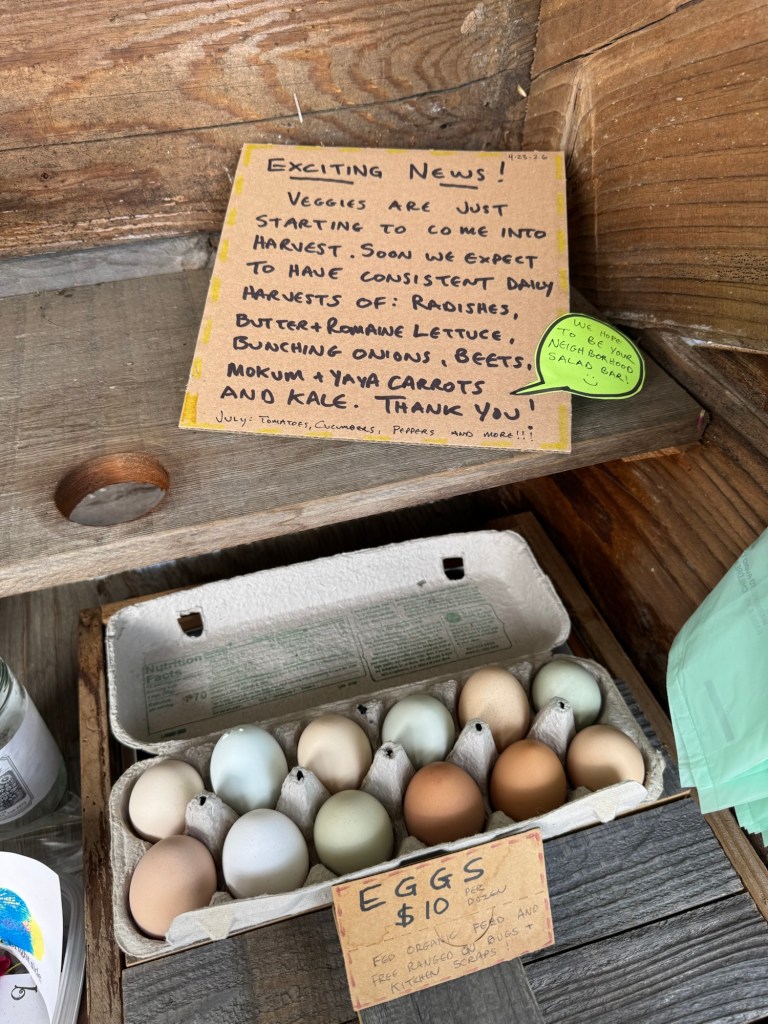 4-25-26
EXCITING NEWS!
VEGGIES ARE JUST
STARTING TO COME INTO
HARVEST. SOON WE EXPECT
TO HAVE CONSISTENT DAILY
HARVESTS OF: RADISHES,
BUTTER + ROMAINE LETTUCE,
BUNCHING ONIONS, BEETS,
MOKUM + YAYA CARROTS
AND KALE. THANK YOU!
JULY: TOMATOES, CUCUMBERS, PEPPERS AND MORE!!!
WE HOPE
TO BE YOUR
NEIGHBORHOOD
SALAD BAR!
Nutrition
Facts
70
EGGS
$10 PER
DOZEN
FED ORGANIC FEED AND
FREE RANGED ON BUGS +
KITCHEN SCRAPS!